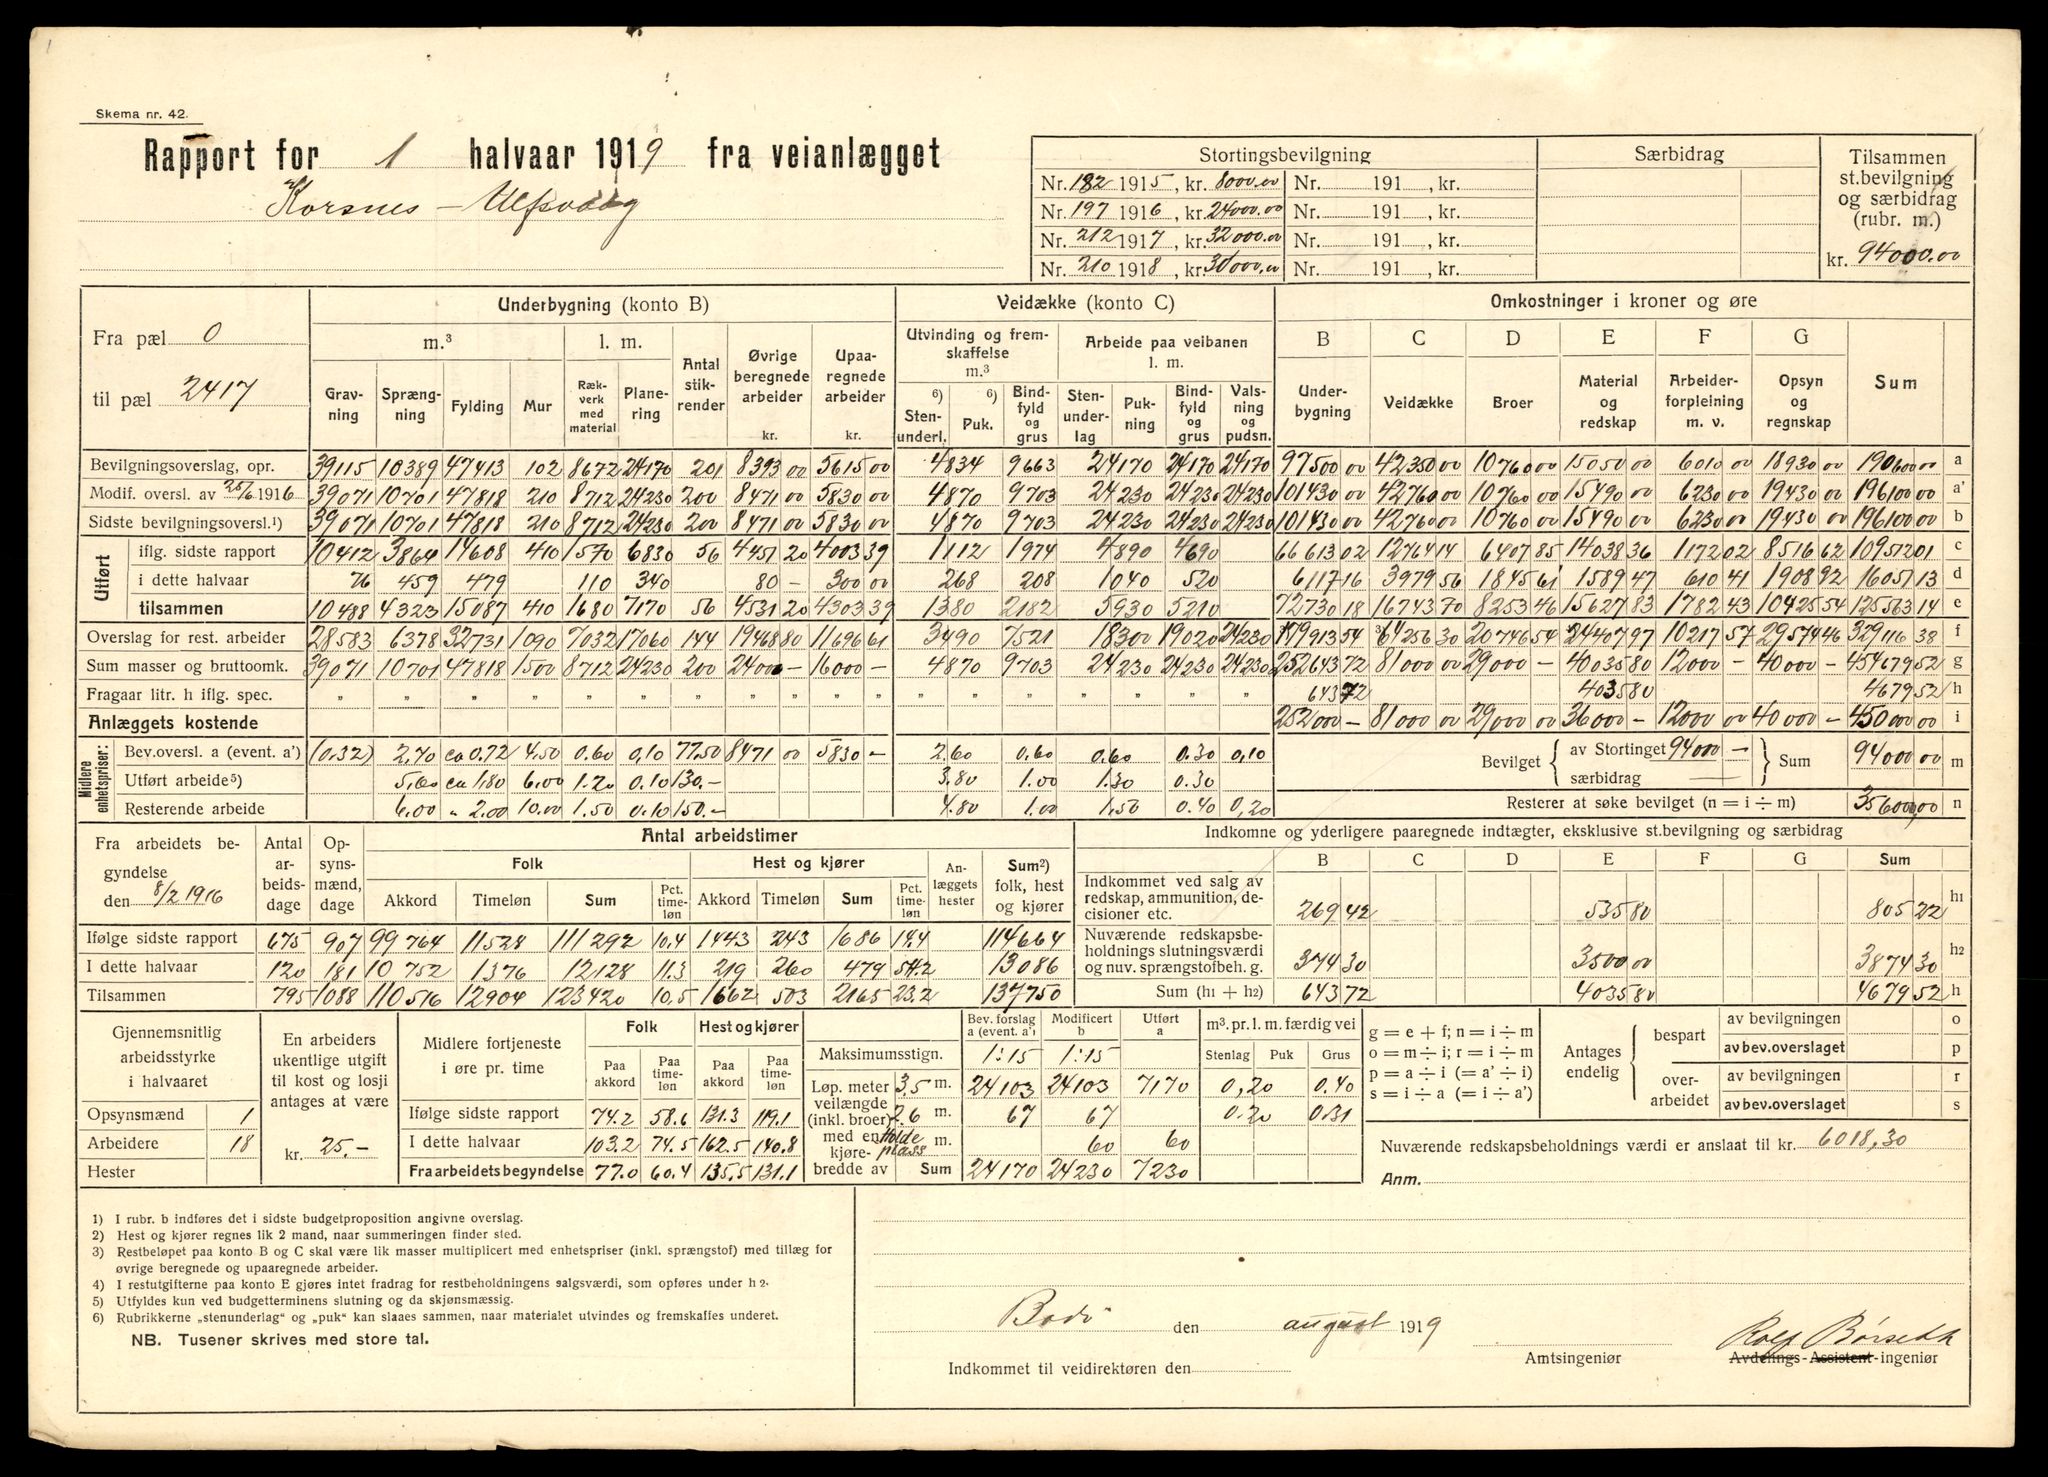 Skema nr. 42.
Rapport for 1 halvaar 1919 fra veianlægget
Korsnes - Ulfsvaag
Stortingsbevilgning Særbidrag Tilsammen st.bevilgning og særbidrag (rubr. m.)
Nr. 182 1915, kr. 8000.00 Nr. 191 , kr.
Nr. 197 1916, kr. 24000.00 Nr. 191 , kr.
Nr. 212 1917, kr. 32000.00 Nr. 191 , kr.
Nr. 210 1918, kr. 30000.00 Nr. 191 , kr.
kr. 94000.00
Fra pæl 0
til pæl 2417
Underbygning (konto B) Veidække (konto C) Omkostninger i kroner og øre
m.³ l. m. Antal stikrender Øvrige beregnede arbeider kr. Upaaregnede arbeider kr. Utvinding og fremskaffelse m.³ Arbeide paa veibanen l. m. B C D E F G Sum
Gravning Sprængning Fylding Mur Rækverk med material Planering 6) Stenunderl. 6) Puk. Bindfyld og grus Stenunderlag Pukning Bindfyld og grus Valsning og pudsn. Underbygning Veidække Broer Material og redskap Arbeiderforpleining m. v. Opsyn og regnskap
Bevilgningsoverslag, opr. 39115 10389 47413 102 8672 24170 201 8393 00 5615 00 4834 9663 24170 24170 24170 97500 00 42350 00 10760 00 15050 00 6010 00 18930 00 190600 00 a
Modif. oversl. av 25/6 1916 39071 10701 47818 210 8712 24230 200 8471 00 5830 00 4870 9703 24230 24230 24230 101430 00 42760 00 10760 00 15490 00 6230 00 19430 00 196100 00 a'
Sidste bevilgningsoversl.¹) 39071 10701 47818 210 8712 24230 200 8471 00 5830 00 4870 9703 24230 24230 24230 101430 00 42760 00 10760 00 15490 00 6230 00 19430 00 196100 00 b
Utført
iflg. sidste rapport 10412 3864 14608 410 1570 6830 56 4451 20 4003 39 1112 1974 4890 4690 66613 02 12764 14 6407 85 14038 36 1172 02 8516 62 109512 01 c
i dette halvaar 76 459 479 110 340 80 - 300 00 268 208 1040 520 6117 16 3979 56 1845 61 1589 47 610 41 1908 92 16051 13 d
tilsammen 10488 4323 15087 410 1680 7170 56 4531 20 4303 39 1380 2182 5930 5210 72730 18 16743 70 8253 46 15627 83 1782 43 10425 54 125563 14 e
Overslag for rest. arbeider 28583 6378 32731 1090 7032 17060 144 19468 80 11696 61 3490 7521 18300 19020 24230 179913 54 64256 30 20746 54 24407 97 10217 57 29574 46 329116 38 f
Sum masser og bruttoomk. 39071 10701 47818 1500 8712 24230 200 24000 - 16000 - 4870 9703 24230 24230 24230 252643 72 81000 00 29000 - 40035 80 12000 - 40000 - 454679 52 g
Fragaar litr. h iflg. spec. " " " " " " " " " " " " " " 643 72 4035 80 4679 52 h
Anlæggets kostende 252000 - 81000 00 29000 00 36000 - 12000 00 40000 - 450000 00 i
Midlere enhetspriser:
Bev.oversl. a (event. a') (0.32) 2.70 ca 0.72 4.50 0.60 0,10 77.50 8471 00 5830 - 2.60 0.60 0.60 0.30 0,10 Bevilget av Stortinget 94000 - særbidrag Sum 94000 00 m
Utført arbeide⁵) 5,60 ca 1,80 6.00 1.20 0.10 130.- 3.80 1.00 1.30 0.30
Resterende arbeide 6.00 " 2.00 10.00 1.50 0.10 150.- 4.80 1.00 1.50 0.40 0,20 Resterer at søke bevilget (n = i ÷ m) 356000,00 n
Fra arbeidets begyndelse den 8/2 1916 Antal arbeidsdage Opsynsmænd, dage Antal arbeidstimer
Folk Hest og kjører Anlæggets hester Sum²) folk, hest og kjører
Akkord Timeløn Sum Pct. timeløn Akkord Timeløn Sum Pct. timeløn
Ifølge sidste rapport 675 907 99764 11528 111292 10.4 1443 243 1686 14.4 114664
I dette halvaar 120 181 10752 1376 12128 11.3 219 260 479 54.2 13086
Tilsammen 795 1088 110516 12904 123420 10,5 1662 503 2165 23.2 137750
Indkomne og yderligere paaregnede indtægter, eksklusive st.bevilgning og særbidrag
B C D E F G Sum
Indkommet ved salg av redskap, ammunition, decisioner etc. 269 42 535 80 805 22 h1
Nuværende redskapsbeholdnings slutningsværdi og nuv. sprængstofbeh. g. 374 30 3500 00 3874 30 h2
Sum (h1 + h2) 643 72 4035 80 4679 52 h
Gjennemsnitlig arbeidsstyrke i halvaaret
Opsynsmænd 1
Arbeidere 18
Hester
En arbeiders ukentlige utgift til kost og losji antages at være
kr. 25.-
Midlere fortjeneste i øre pr. time Folk Hest og kjører
Paa akkord Paa timeløn Paa akkord Paa timeløn
Ifølge sidste rapport 74.2 58.6 131.3 119.1
I dette halvaar 103.2 74.5 162.5 140.8
Fra arbeidets begyndelse 77.0 60.4 135.5 131.1
Bev. forslag a (event. a') Modificert b Utført a m³. pr. l. m. færdig vei
Maksimumsstign. 1:15 1:15 Stenlag Puk Grus
Løp. meter veilængde (inkl. broer) med en kjørebredde av
3.5 m. 24103 24103 7170 0,20 0.40
2.6 m. 67 67 0.20 0.31
Holdeplass m. 60 60
Sum 24170 24230 7230
g = e + f; n = i ÷ m
o = m ÷ i; r = i ÷ m
p = a ÷ i (= a' ÷ i)
s = i ÷ a (= i ÷ a')
Antages endelig
bespart av bevilgningen o
av bev.overslaget p
overarbeidet av bevilgningen r
av bev.overslaget s
Nuværende redskapsbeholdnings værdi er anslaat til kr. 6018,30
Anm.
1) I rubr. b indføres det i sidste budgetproposition angivne overslag.
2) Hest og kjører regnes lik 2 mand, naar summeringen finder sted.
3) Restbeløpet paa konto B og C skal være lik masser multiplicert med enhetspriser (inkl. sprængstof) med tillæg for
øvrige beregnede og upaaregnede arbeider.
4) I restutgifterne paa konto E gjøres intet fradrag for restbeholdningens salgsværdi, som opføres under h 2.
5) Utfyldes kun ved budgetterminens slutning og da skjønsmæssig.
6) Rubrikkerne „stenunderlag“ og „puk“ kan slaaes sammen, naar materialet utvindes og fremskaffes underet.
NB. Tusener skrives med store tal.
Bodö den august 1919
Rolf Børseth
Amtsingeniør Avdelings-Assistent-ingeniør
Indkommet til veidirektøren den